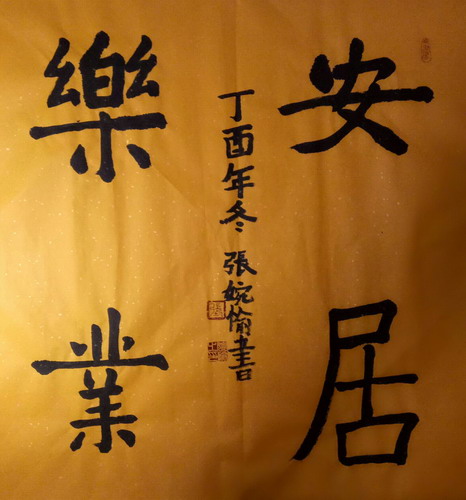 安居
樂業
丁酉年冬 張婉愉書